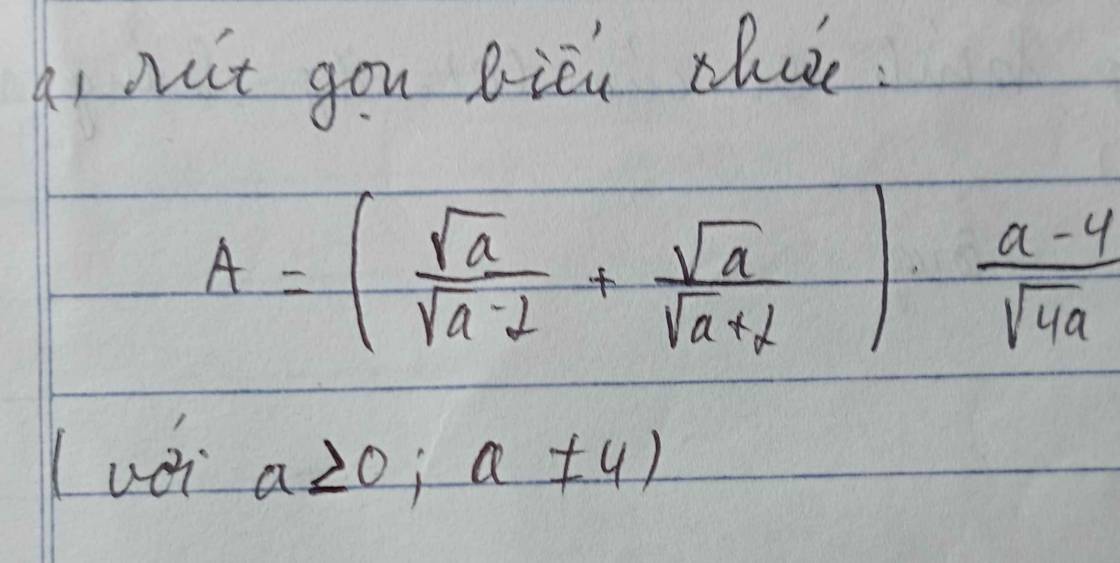 a, rút gọn biểu thức :
A = ( √a / √a - 2 + √a / √a + 2 ) . a - 4 / √4a
( với a ≥ 0 ; a ≠ 4 )